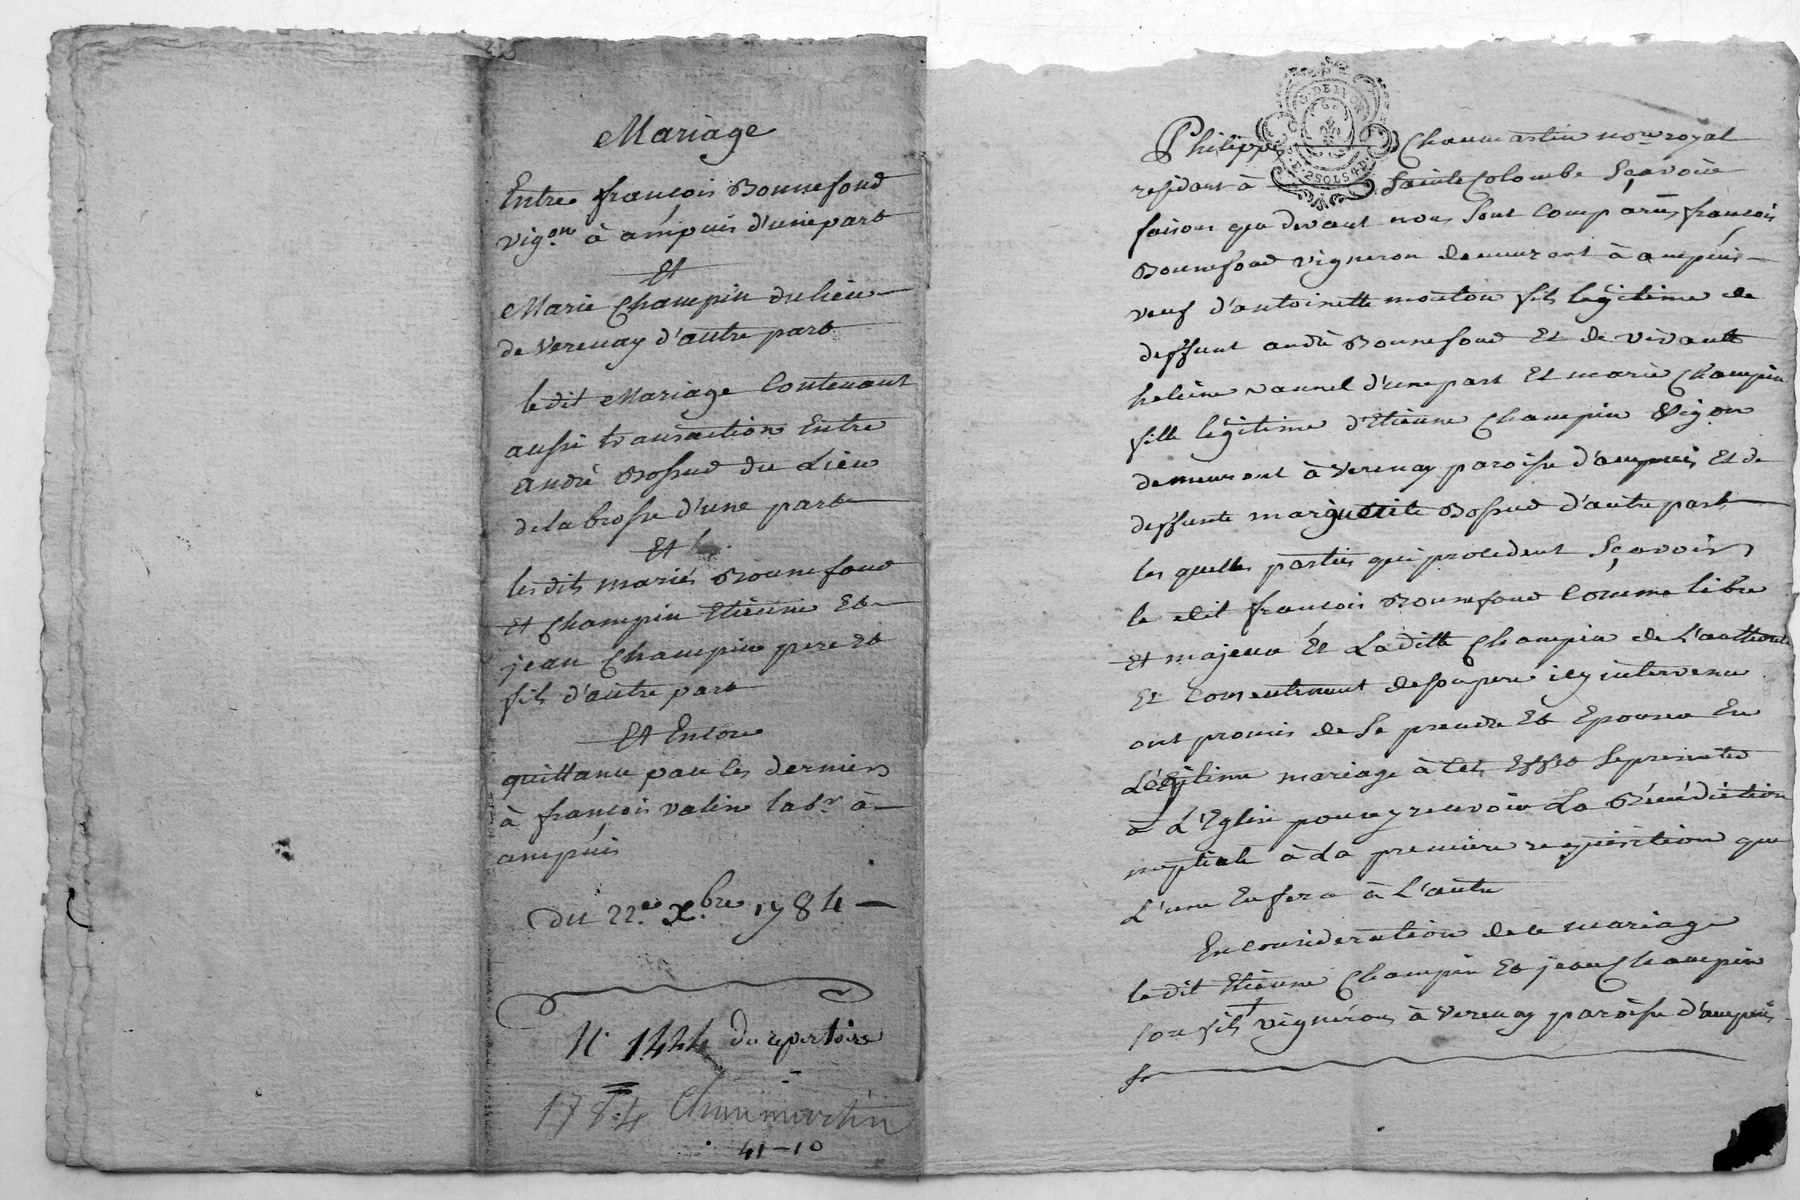 Mariage
Entre françois Bonnefond
vig.on à ampuis d'une part
Et
Marie Champin du lieu
de Verenay d'autre part
le dit Mariage Contenant
aussi transaction Entre
andré Bossud du Lieu
de la brosse d'une part
Et
les dits mariés Bonnefond
et Champin Etienne Et
jean Champin pere et
fils d'autre part
Et Encore
quittance par les derniers
à françois valin lab.r à
ampuis
du 22.e X.bre 1784
N.o 1444 du repertoire
1784 Chaumartin
41-10
G. DE LYON
2 SOLS 4 D.
Philippe Chaumartin no.re royal
residant à Sainte Colombe Sçavoir
faisons que devant nous sont Comparus françois
Bonnefond vigneron demeurant à ampuis
veuf d'antoinette mouton fils legitime de
deffunt andré Bonnefond Et de vivante
heleine d'une part Et marie Champin
fille légitime d'Etienne Champin Vig.on
demeurant à Verenay paroisse d'ampuis Et de
deffunte marguerite Bossud d'autre part
les quelles parties qui procedent Sçavoir
le dit françois Bonnefond Comme libre
et majeur Et La ditte Champin de L'authorité
Et Consentement de son pere icy intervenu
ont promis de Se prendre Et Epouser En
Légitime mariage à Cet Effet Se presenter
à L'Eglise pour y recevoir La Bénédiction
nuptiale à La premiere requisition que
L'une En fera à L'autre
En consideration de ce mariage
le dit Etienne Champin Et jean Champin
son fils vignerons à Verenay paroisse d'ampuis